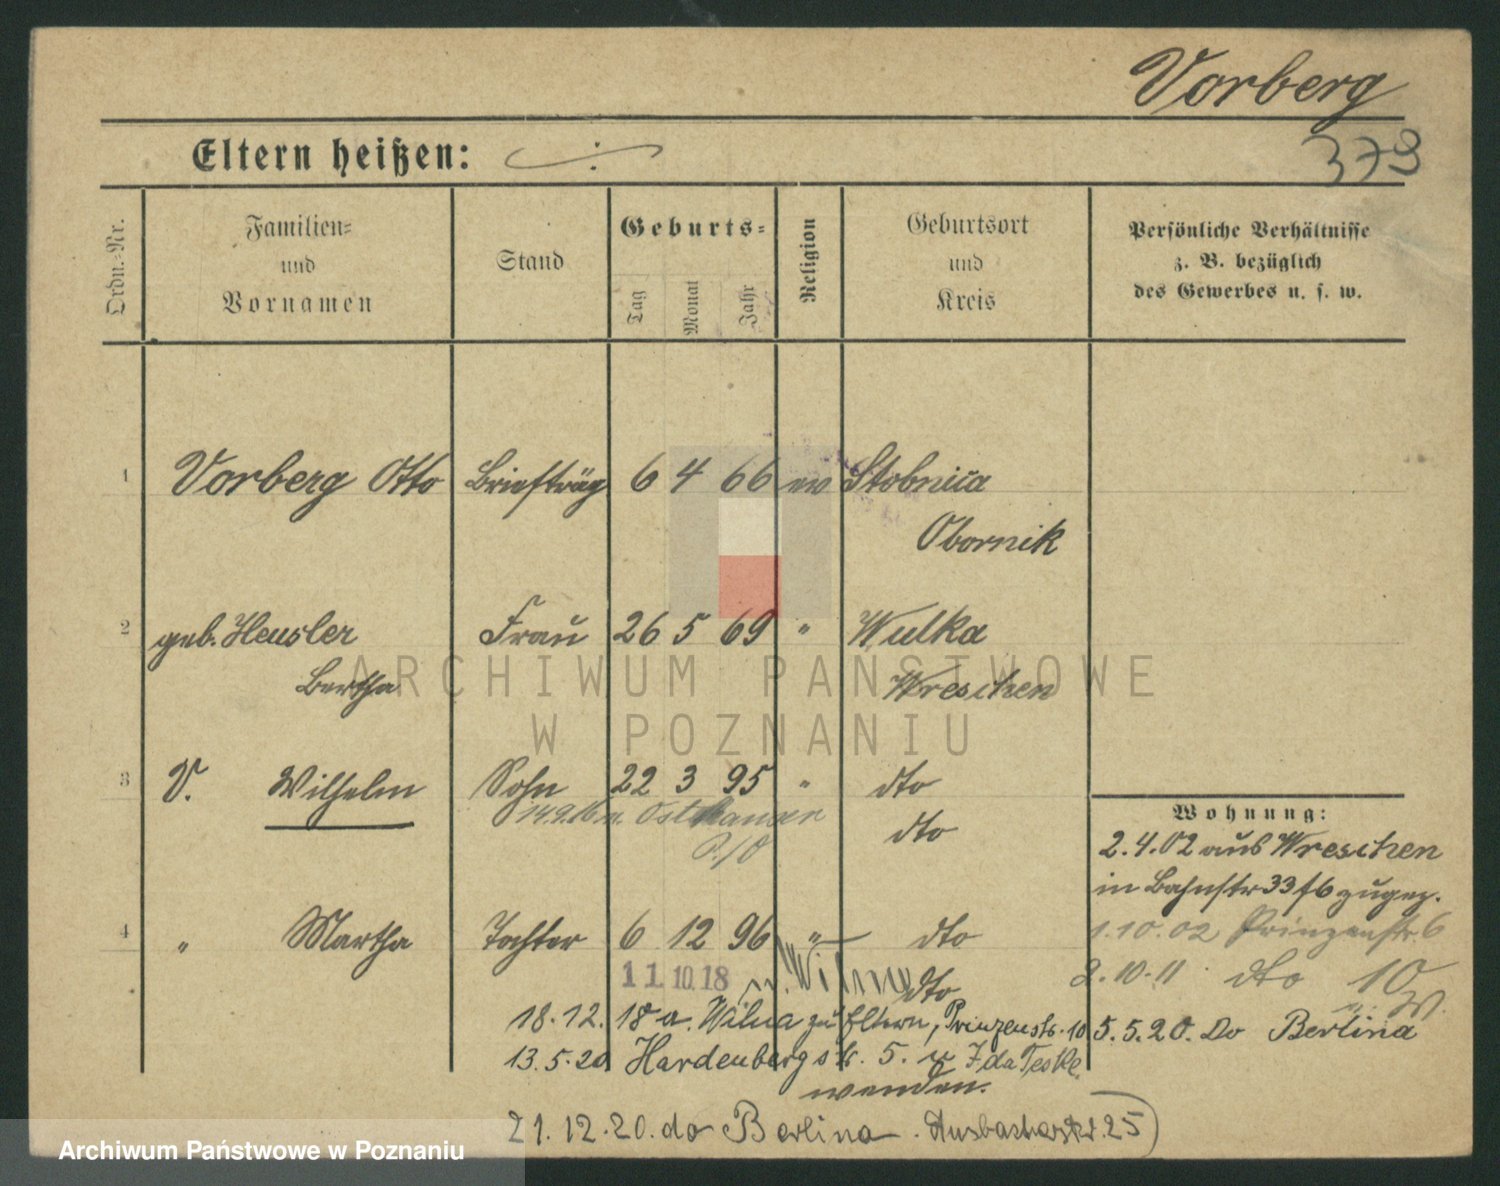 Vorberg
Eltern heißen:
379
Ordn.-Nr.
Familien-
und
Vornamen
Stand
Geburts-
Tag
Monat
Jahr
Religion
Geburtsort
und
Kreis
Persönliche Verhältnisse
z. B. bezüglich
des Gewerbes u. s. w.
1 Vorberg Otto Briefträg 6 4 66 ev Stobnica
Obornik
2 geb. Heusler Frau 26 5 69 " Wulka
Bertha Wreschen
3 V. Wilhelm Sohn 22 3 95 " dto
14.9.16 n. dto
Wohnung:
2.4.02 aus Wreschen
in Bahnstr 33 zugez.
4 " Martha Tochter 6 12 96 " dto
1.10.02 Prinzenstr. 6
11.10.18 n. Wilna dto
2.10.11 dto 10
18.12.18 a. Wilna zu Eltern, Prinzenstr. 10
5.5.20. Do Berlina
13.5.20 Hardenbergstr. 5. Ida Teske
wenden.
21.12.20. do Berlina. 25
ARCHIWUM PAŃSTWOWE
W POZNANIU
Archiwum Państwowe w Poznaniu